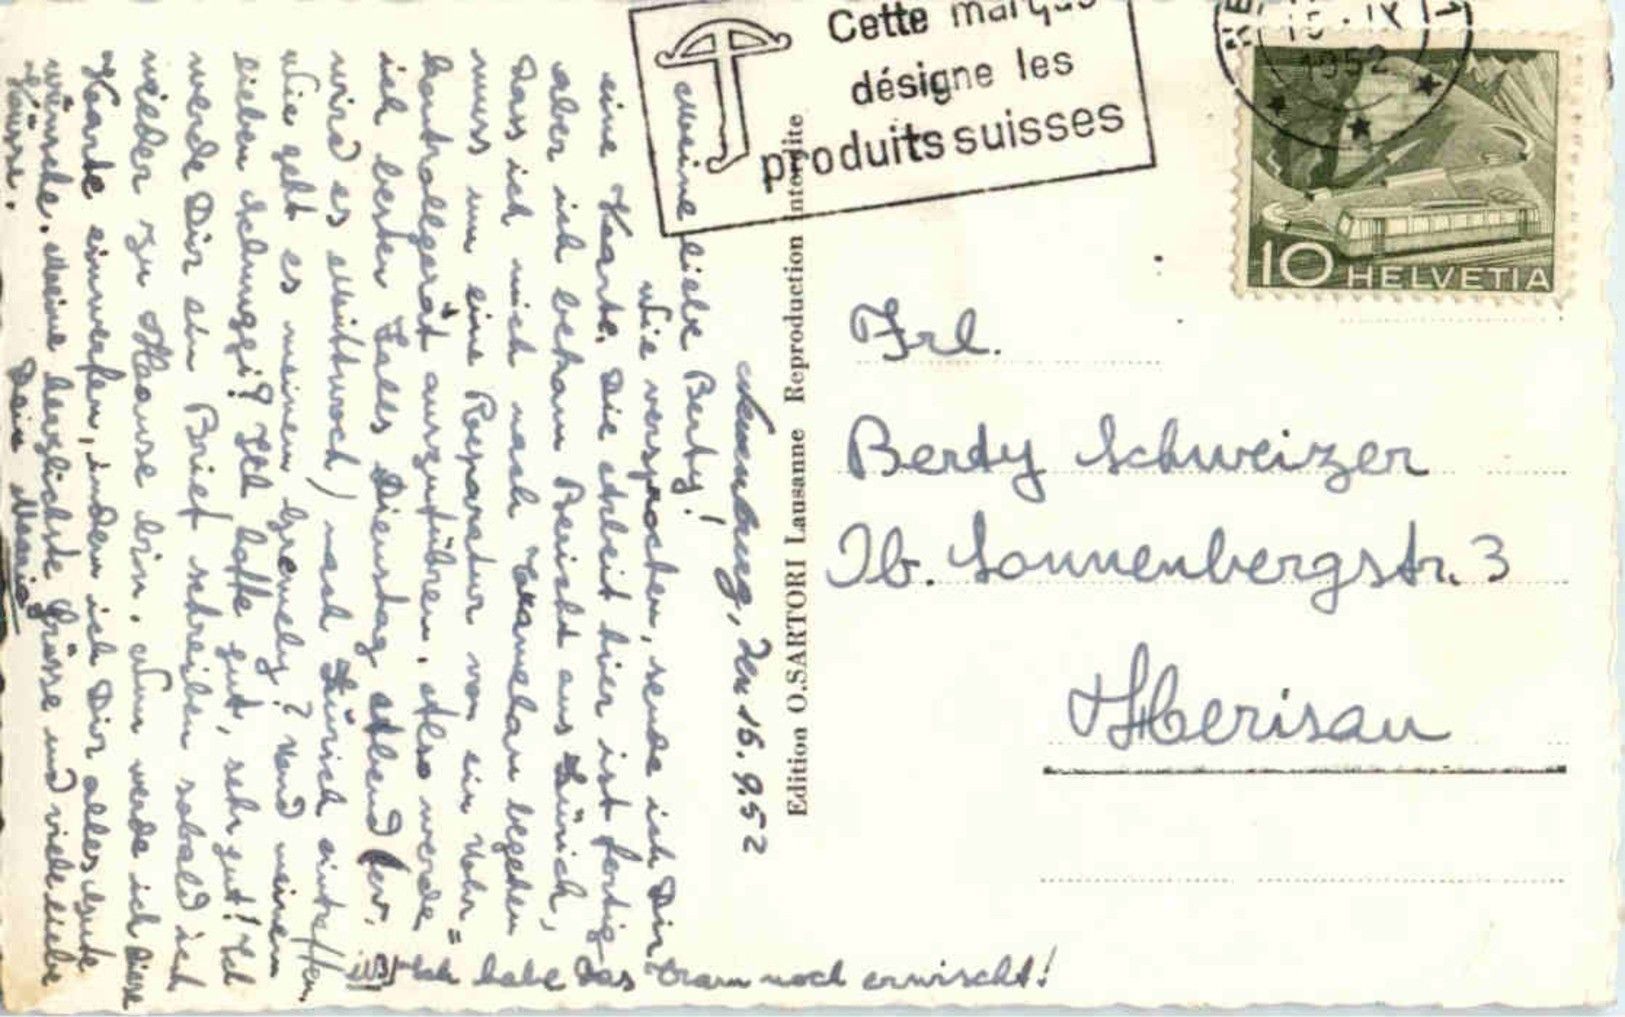 Cette marque
désigne les
produits suisses
15.IX
1952
10 HELVETIA
Edition O. SARTORI Lausanne Reproduction interdite
Frl.
Berty Schweizer
Ob. Sonnenbergstr. 3
Herisau
Neuenburg, den 15.9.52
Meine liebe Berty!
Wie versprochen, sende ich Dir
eine Karte. Die Arbeit hier ist fertig
aber ich bekam Bericht aus Zürich,
dass ich mich nach begeben
muss um eine Reparatur von ein Uhr=
kontrollgerät auszuführen. Also werde
ich besten Falls Dienstag Abend (ev.
wird es Mittwoch) nach Zürich eintreffen.
Wie geht es meinem ? Und meinem
lieben Schnuggi? Ich hoffe gut, sehr gut! Ich
werde Dir ein Brief schreiben sobald ich
wieder zu Hause bin. Nun werde ich diese
Karte einwerfen, indem ich Dir alles Gute
wünsche. Meine herzlichste Grüsse und viele liebe
Küsse.
Dein
Ich habe das Tram noch erwischt!